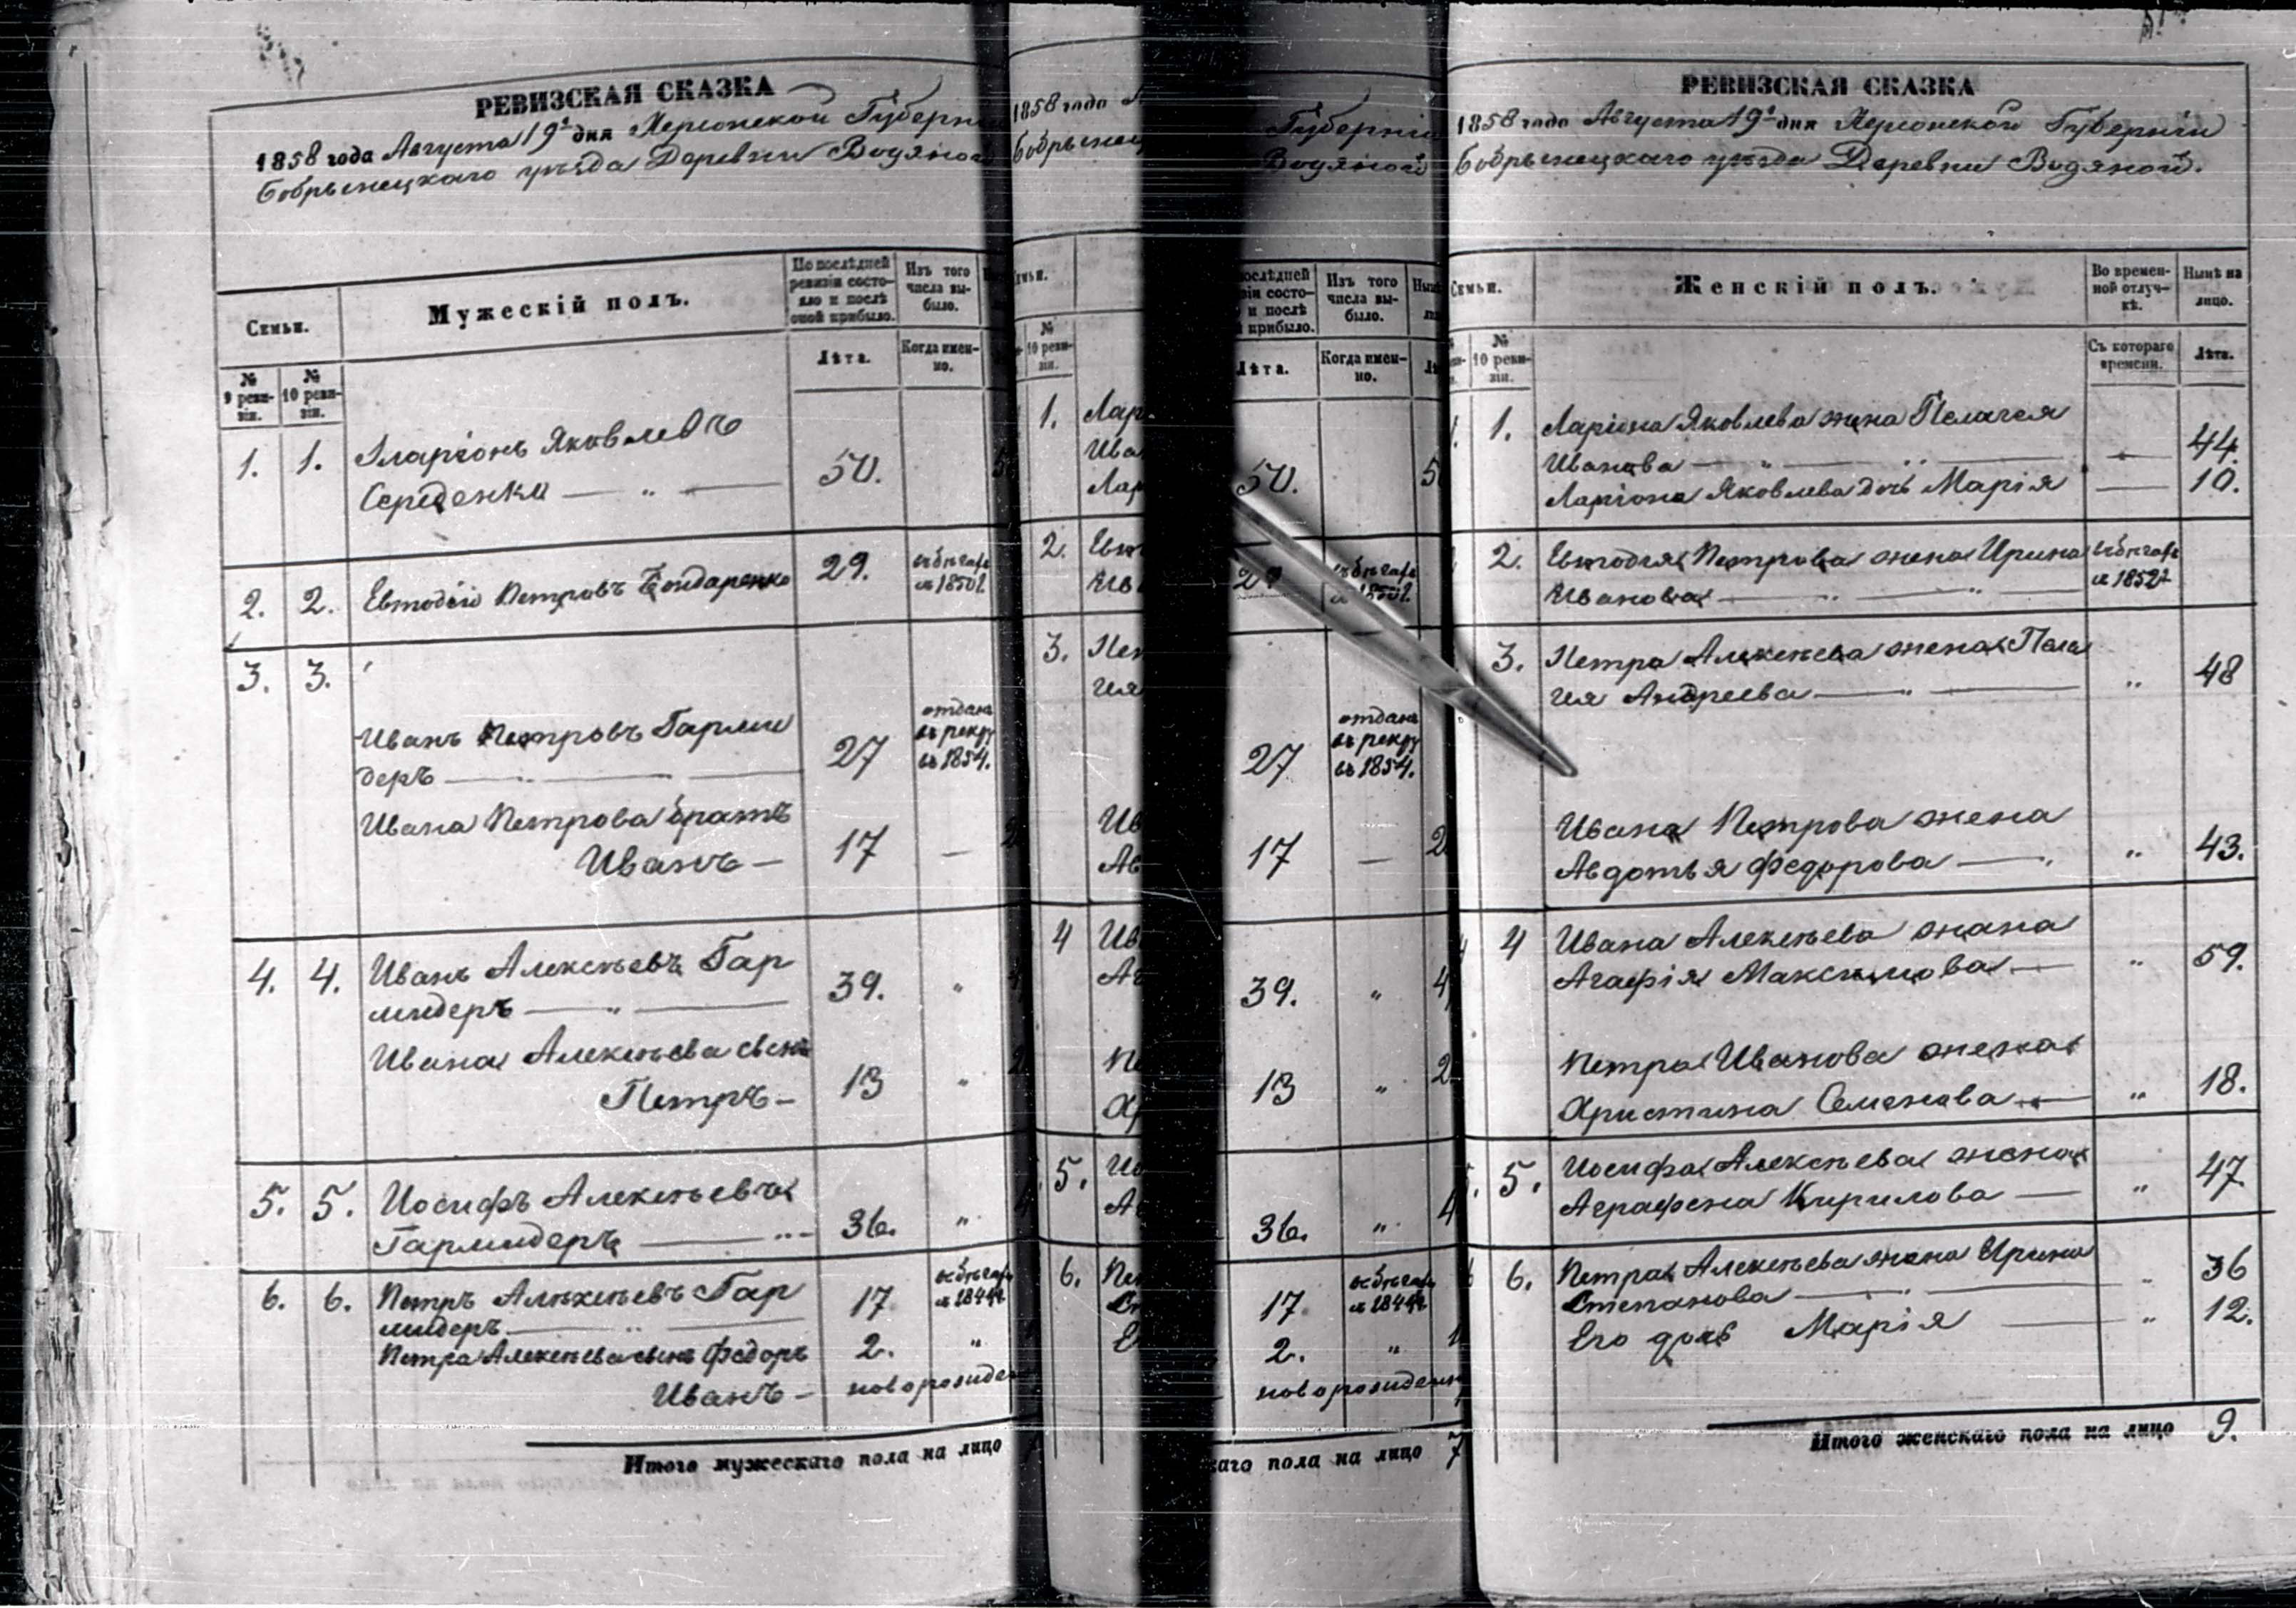 РЕВИЗСКАЯ СКАЗКА
1858 года Августа 19 дня Херсонской Губерни
Бобринецкаго уезда Деревни Водяной
Семьи.
Мужескій полъ.
По послѣдней ревизіи состояло и послѣ оной прибыло.
Изъ того числа выбыло.
№ 9 ревизіи.
№ 10 ревизіи.
Лѣта.
Когда именно.
1. 1. Іларіонъ Яковлевъ
Середенко — „ — 50.
2. 2. Евтодій Петровъ Бондаренко 29. въ бѣгахъ съ 1850 г.
3. 3.
Иванъ Петровъ Гарли
деръ — 27 отданъ въ рекру въ 1854.
Ивана Петрова братъ
Иванъ — 17 —
4. 4. Иванъ Алексѣевъ Гар
лидеръ — „ — 39. „
Ивана Алексѣева сынъ
Петръ — 13 „
5. 5. Иосифъ Алексѣевъ
Гарлидеръ — 36. „
6. 6. Петръ Алексѣевъ Гар
лидеръ — „ — 17
Петра Алексѣева сынъ Федоръ 2. „
Иванъ — новорожден
Итого мужескаго пола на лицо
1858 года
Бобринец
№ 10 ревизіи.
1. Лар
Ива
Лар
2. Евт
Ива
3. Пет
гия
Ив
Ав
4 Ив
Аг
Пе
Хр
5. Ио
Аг
6. Пет
Ст
Ег
Губерніи
Водяной
Изъ того числа выбыло.
Лѣта.
Когда именно.
50.
29
27 отданъ въ рекру въ 1854.
17 —
39. „
13 „
36. „
17
2. „
новорожден
каго пола на лицо 7
РЕВИЗСКАЯ СКАЗКА
1858 года Августа 19 дня Херсонской Губерніи
Бобринецкаго уезда Деревни Водяной.
Семьи.
Женскій полъ.
Во временной отлучкѣ.
Нынѣ на лицо.
№ 10 ревизіи.
Съ котораго времени.
Лѣта.
1. Ларіона Яковлева жена Пелагея
Иванова — „ — 44.
Ларіона Яковлева дочь Марія — 10.
2. Евтодія Петрова жена Ирина въ бѣгахъ
Иванова — „ — съ 1852 г
3. Петра Алексѣева жена Пела
гия Андреева — „ — „ 48
Ивана Петрова жена
Авдотья Федорова — „ 43.
4 Ивана Алексѣева жена
Агафія Максимова — „ 59.
Петра Иванова жена
Христина Семенова — „ 18.
5. Иосифа Алексѣева жена
Аграфена Кирилова — „ 47
6. Петра Алексѣева жена Ирина
Степанова — „ 36
Его дочь Марія — „ 12.
Итого женскаго пола на лицо 9.